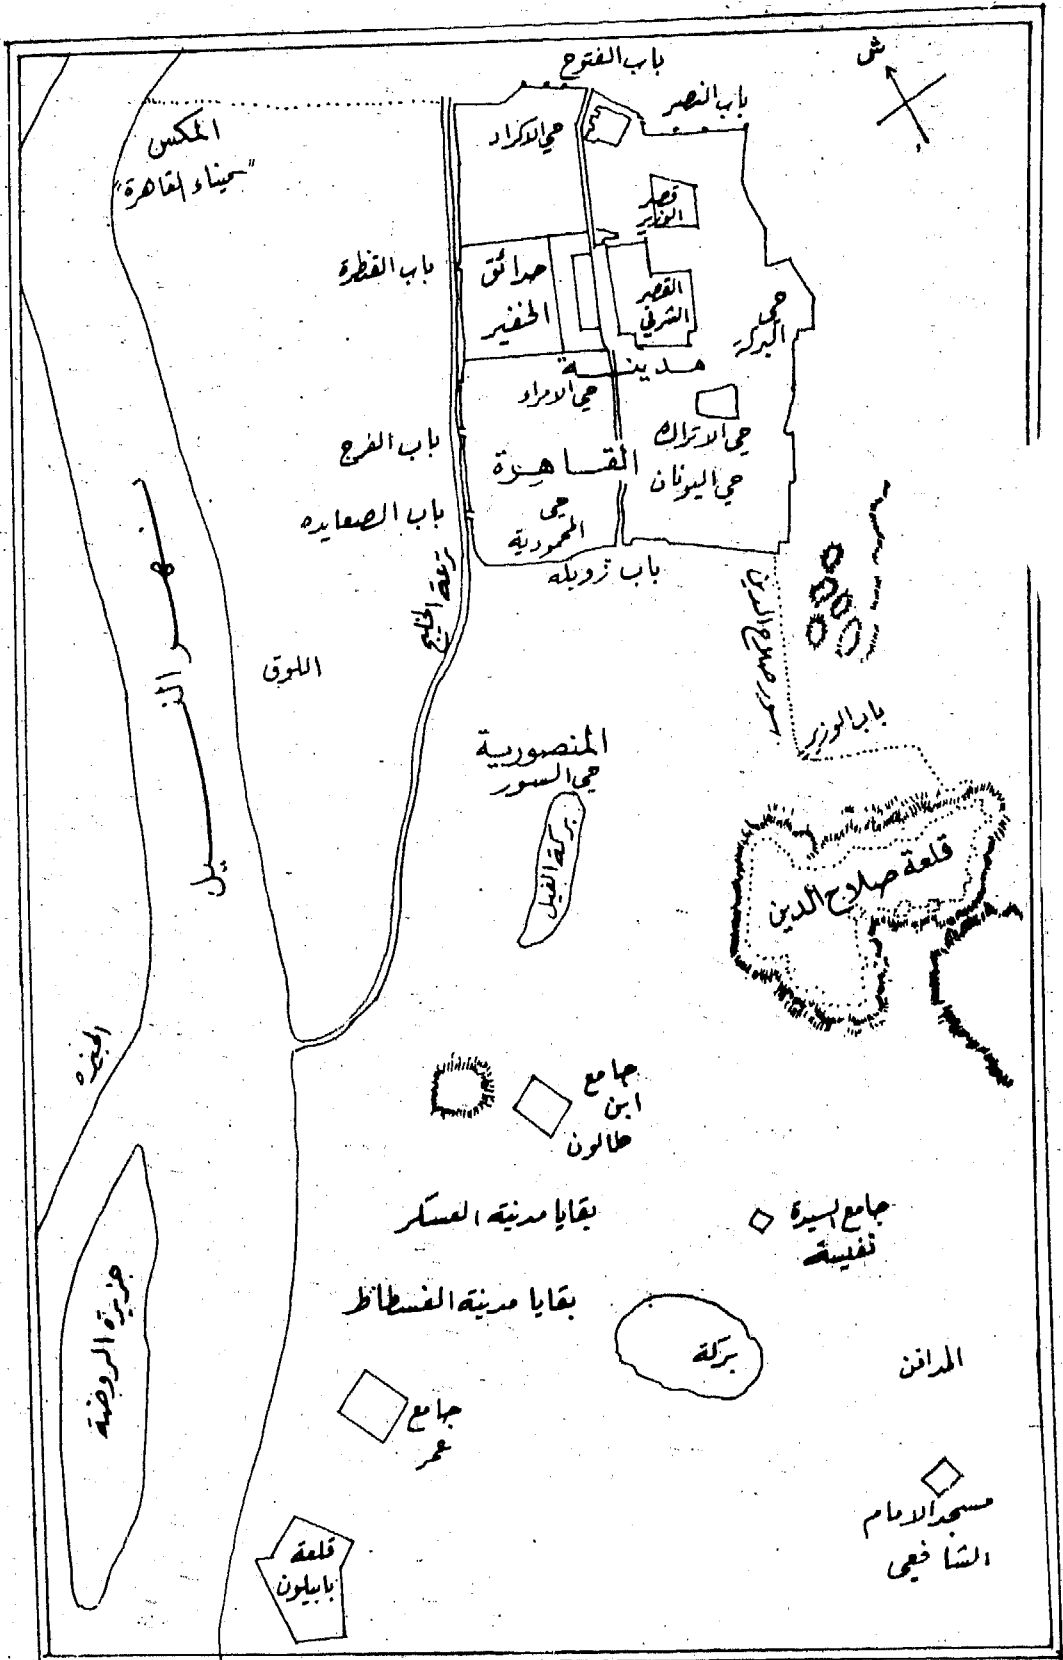 ش
باب الفتوح
باب النصر
المكس
"ميناء القاهرة"
حي الاكراد
قصر
الوزير
باب القنطرة
حدائق
القصر
الشرقي
حي
البركة
مدينة
حي الامراء
حي الاتراك
باب الفرج
القاهرة
حي اليونان
باب الصعايده
حي
المحمودية
باب زويله
ترعة الخليج
سور صلاح الدين
نهر النيل
اللوق
باب الوزير
المنصورية
حي السور
بركة الفيل
قلعة صلاح الدين
الجيزه
جامع
ابن
طالون
بقايا مدينة العسكر
جامع السيدة
نفيسة
بقايا مدينة الفسطاط
جزيرة الروضة
بركة
المدافن
جامع
عمر
مسجد الامام
الشافعي
قلعة
بابيلون